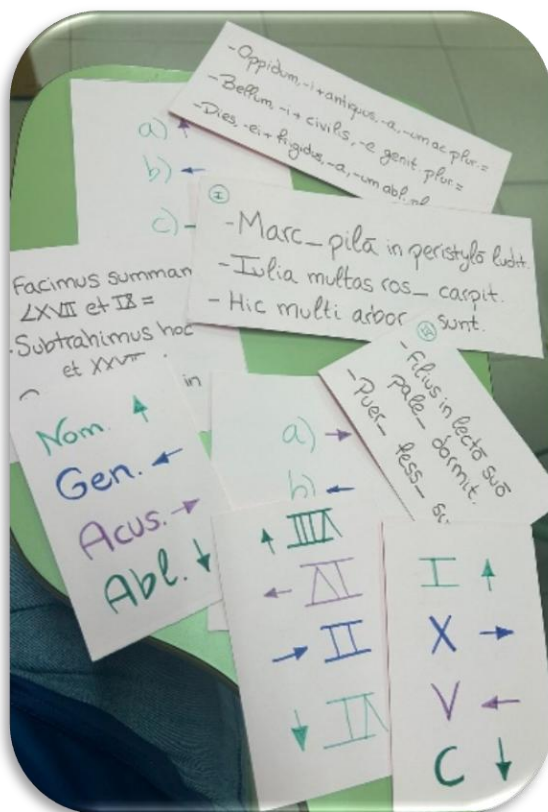 -Oppidum, -i + antiquus, -a, -um ac. plur =
-Bellum, -i + civilis, -e genit. plur =
-Dies, -ei + frigidus, -a, -um abl.
a) ↑
b) ←
c)
I
-Marc_ pilā in peristylō ludit.
-Iulia multas ros_ carpit.
- Hic multi arbor_ sunt.
Facimus summan
LXVII et IX =
-Subtrahimus hoc
et XXVII
in
-Filius in lectō suō
pale_ dormit.
-Puer_ fess_
Nom. ↑
Gen. ←
Acus. →
Abl. ↓
a) →
b) ←
↑ VIII
← IV
→ II
↓ VI
I ↑
X →
V ←
C ↓